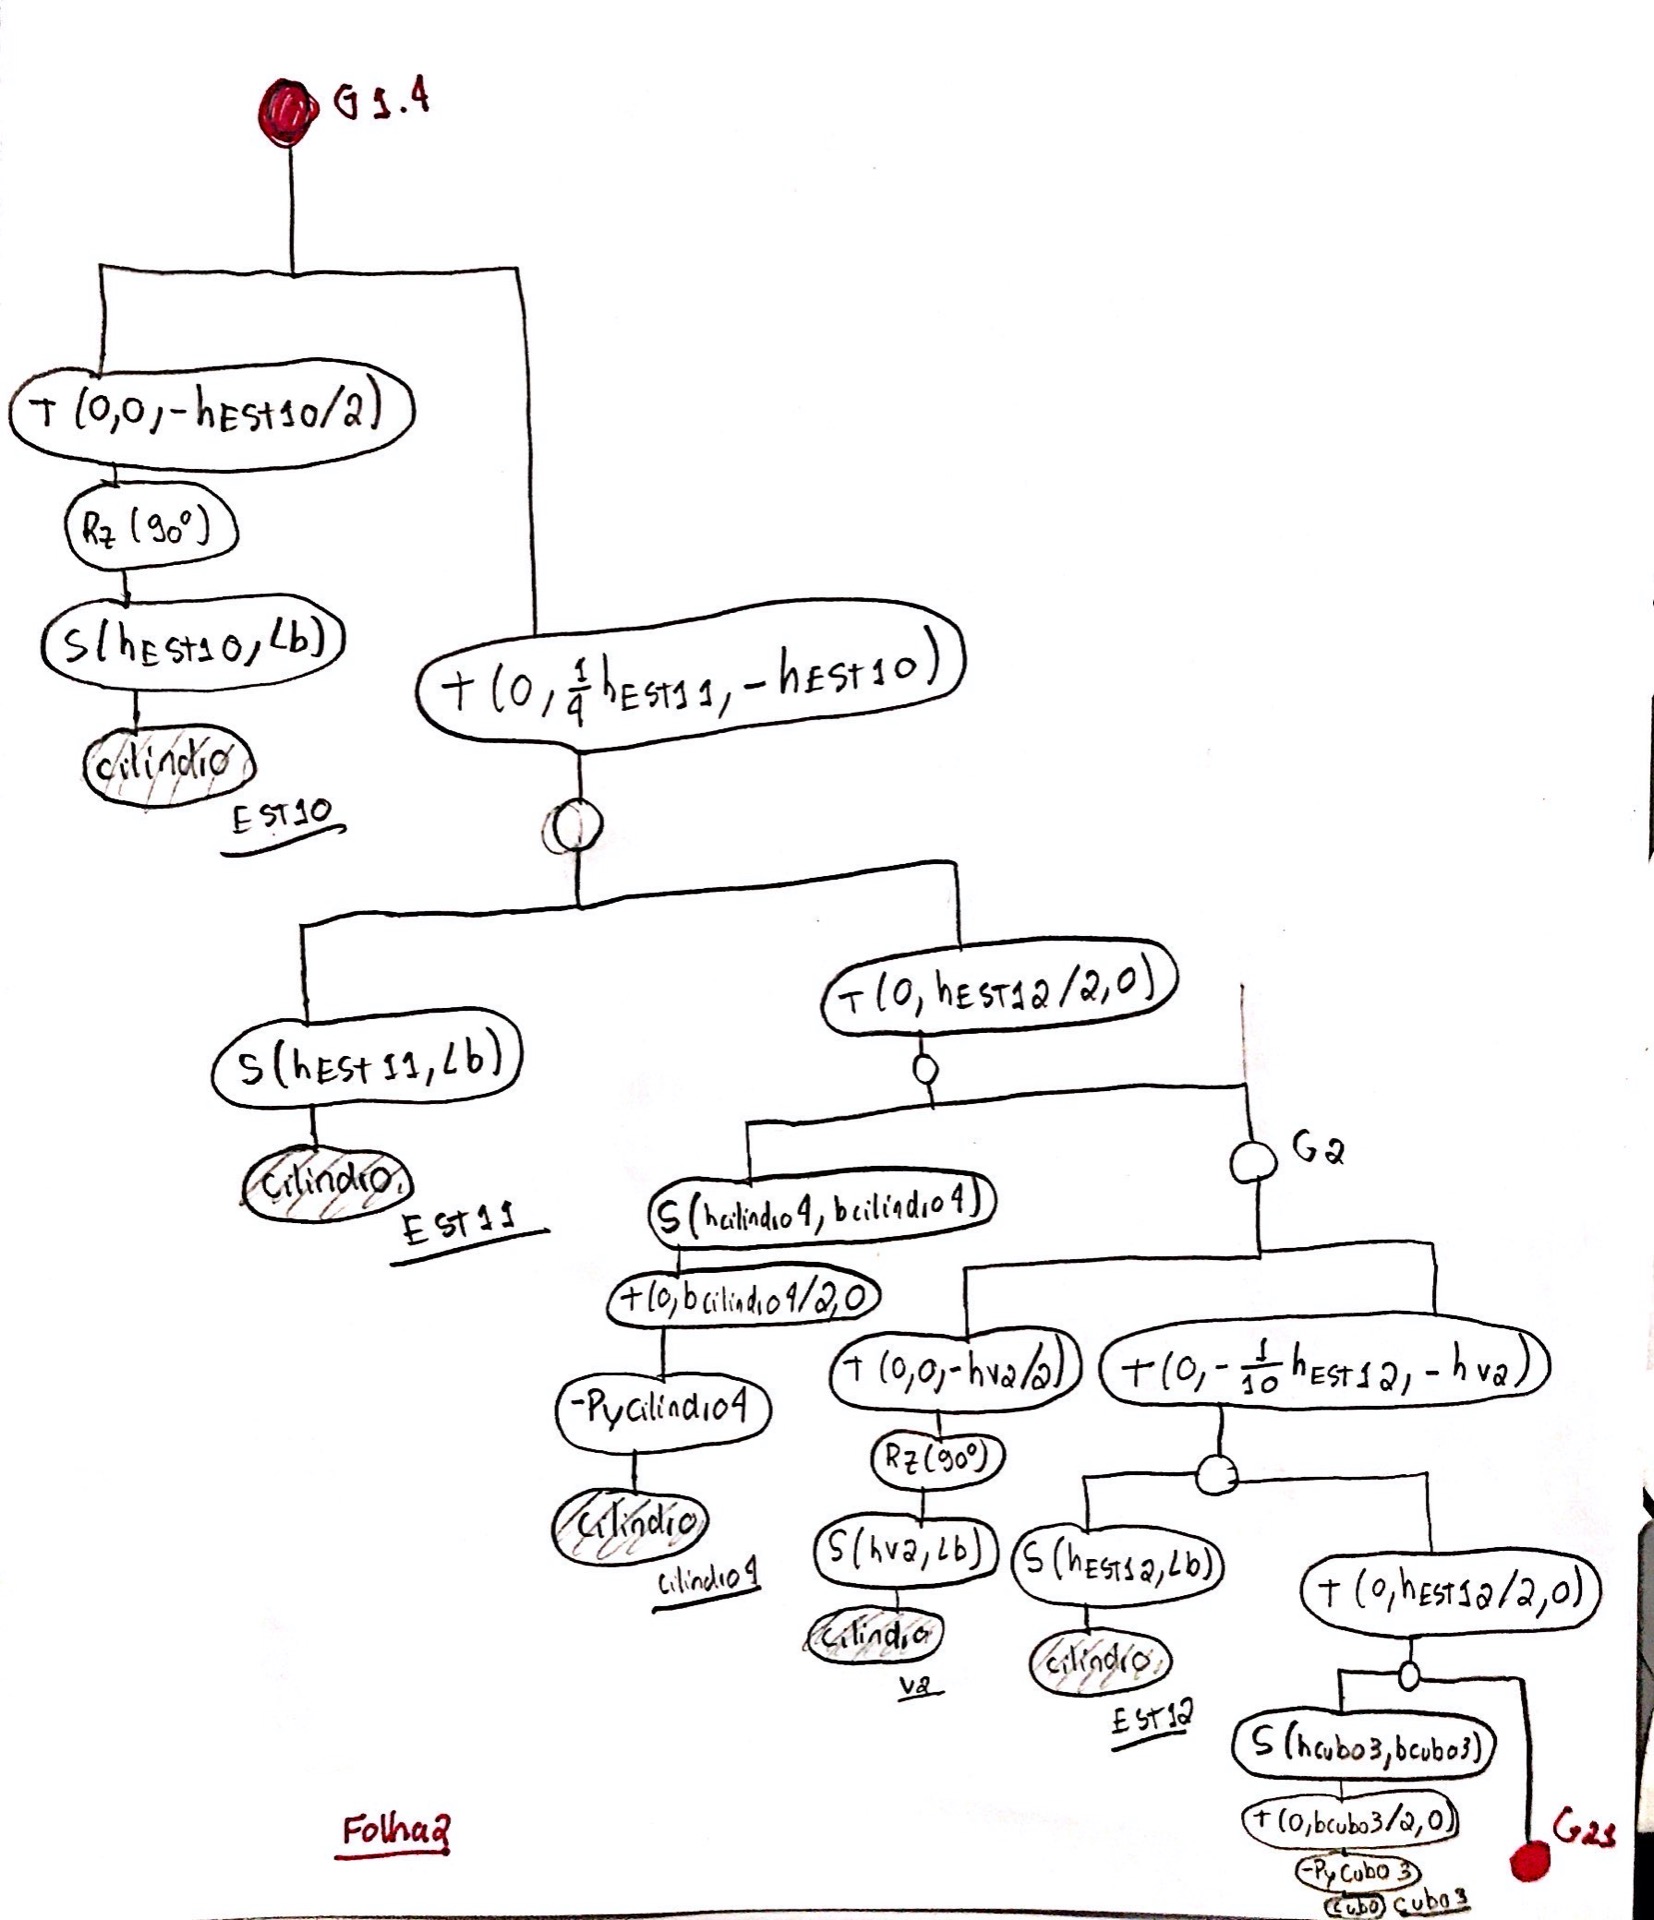 G1.4
T(0,0,-hEST10/2)
Rz(90º)
S(hEST10,Lb)
cilindro
EST10
T(0,1/4hEST11,-hEST10)
T(0,hEST12/2,0)
S(hEST11,Lb)
cilindro
EST11
G2
S(hcilindro4,bcilindro4)
T(0,bcilindro4/2,0)
-Pycilindro4
cilindro
cilindro4
T(0,0,-hv2/2)
T(0,-1/10hEST12,-hv2)
Rz(90º)
S(hv2,Lb)
cilindro
v2
S(hEST12,Lb)
cilindro
EST12
T(0,hEST12/2,0)
S(hcubo3,bcubo3)
T(0,bcubo3/2,0)
-Pycubo3
cubo
cubo3
G21
Folha2